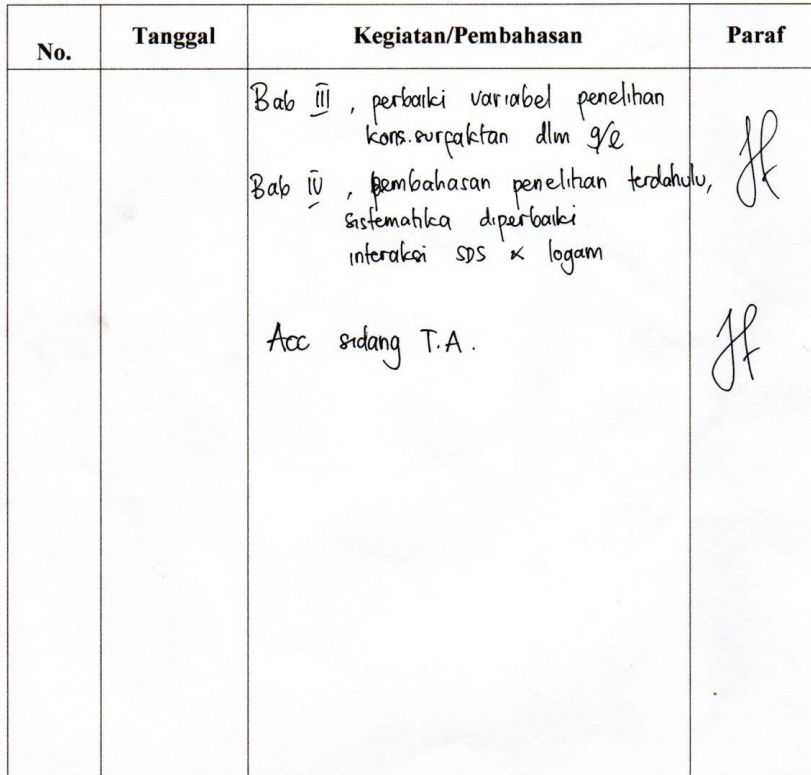 No. Tanggal Kegiatan/Pembahasan Paraf
Bab III, perbaiki variabel penelitian
kons.surfaktan dlm g/l
Bab IV, pembahasan penelitian terdahulu,
sistematika diperbaiki
interaksi SDS & logam
Acc sidang T.A.